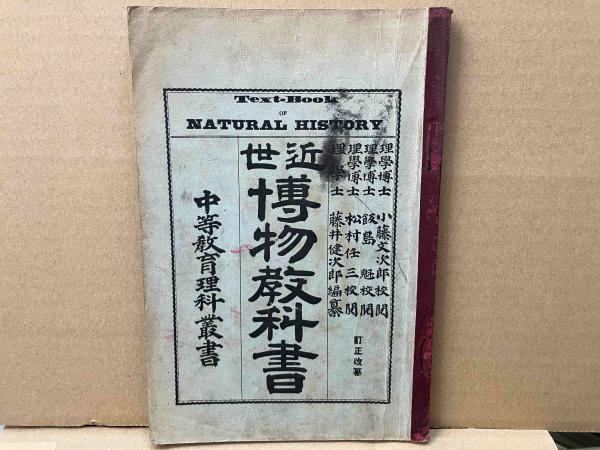 Text-Book
OF
NATURAL HISTORY
理學博士 小藤文次郎校閱
理學博士 飯島 魁校閱
理學博士 松村任三校閱
理學士 藤井健次郎編纂
訂正改纂
近世
博物教科書
中等教育理科叢書